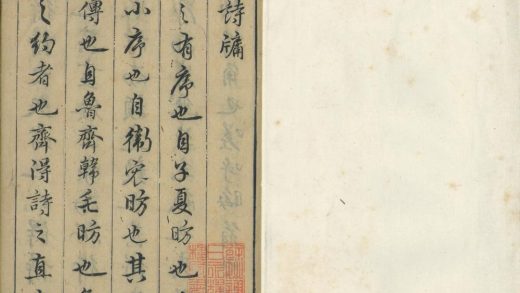 詩牖
之有序也自子夏昉也
小序也自衛宏昉也其
傳也自魯齊韓毛昉也
之約者也齊得詩之直